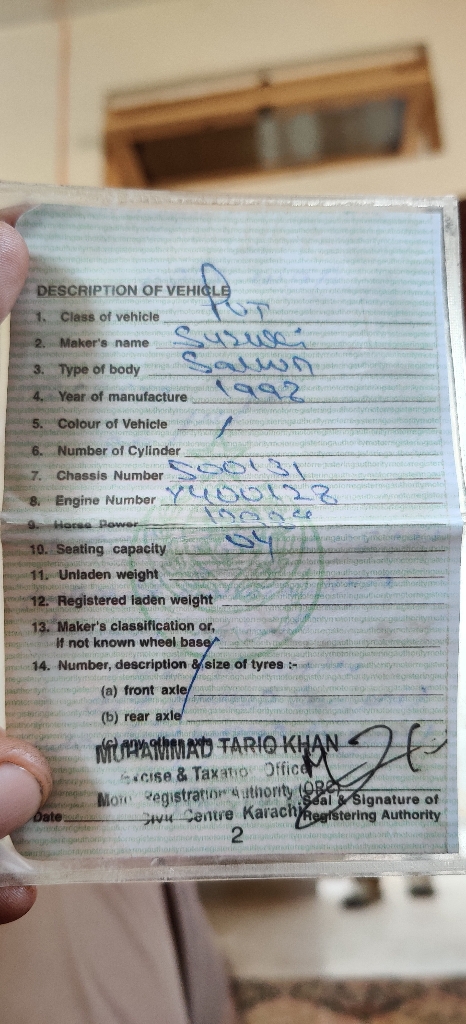 DESCRIPTION OF VEHICLE
1. Class of vehicle PVT
2. Maker's name Suzuki
3. Type of body Saloon
4. Year of manufacture 1992
5. Colour of Vehicle
6. Number of Cylinder
7. Chassis Number 500131
8. Engine Number
9. Horse Power
10. Seating capacity 04
11. Unladen weight
12. Registered laden weight
13. Maker's classification or,
if not known wheel base
14. Number, description & size of tyres :-
(a) front axle
(b) rear axle
(c) any other axle
MUHAMMAD TARIQ KHAN
Excise & Taxation Officer
Motor Registration Authority (ORC)
Seal & Signature of
Date Civic Centre Karachi Registering Authority
2